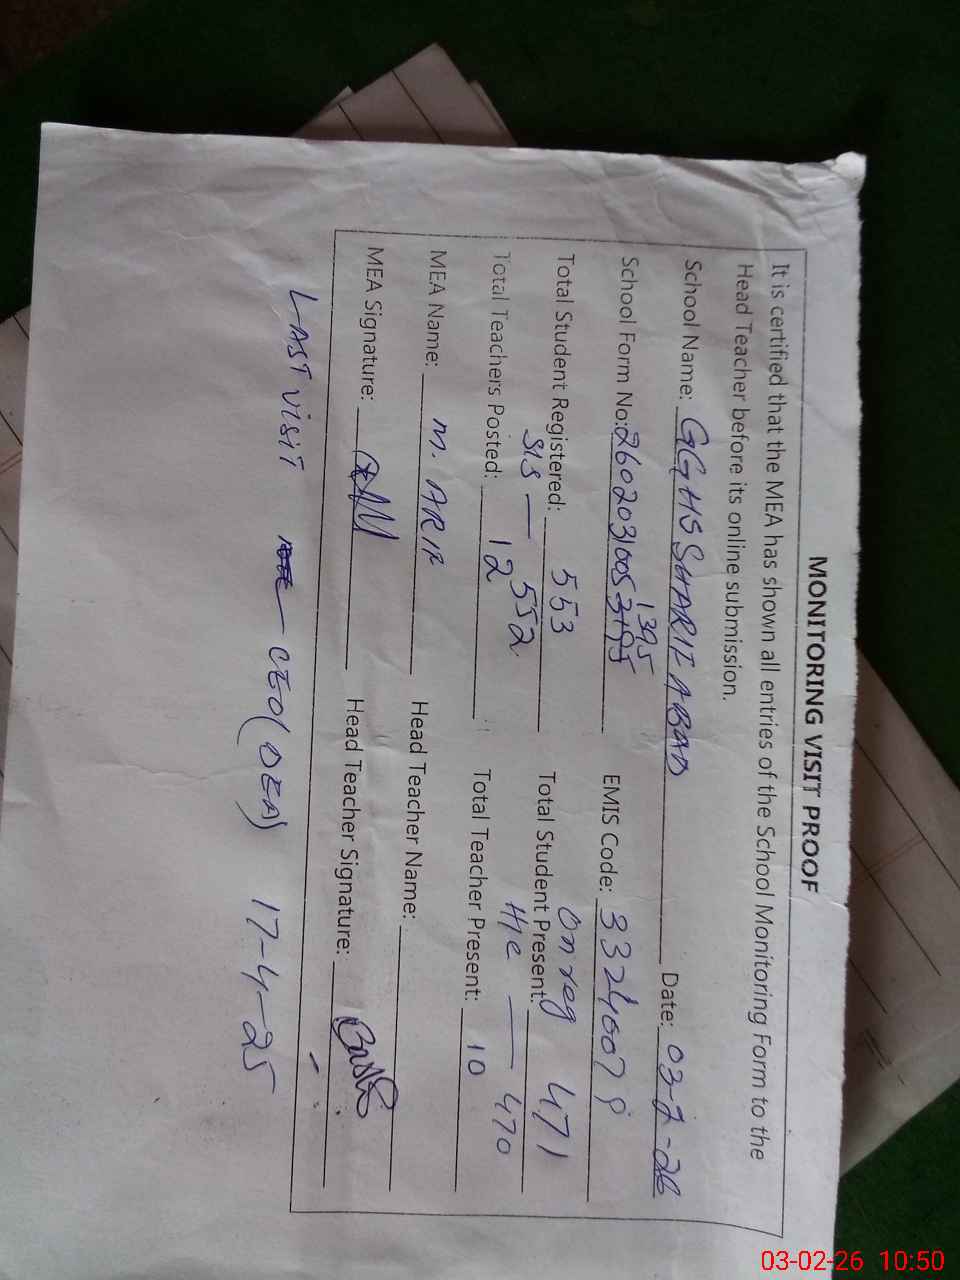 MONITORING VISIT PROOF
It is certified that the MEA has shown all entries of the School Monitoring Form to the
Head Teacher before its online submission.
School Name: GGHS SHARIF ABAD Date: 03-2-26
1395
School Form No: 26020310053195 EMIS Code: 33240078
On reg 471
Total Student Registered: 553 Total Student Present:
SIS — 552 He — 470
Total Teachers Posted: 12 Total Teacher Present: 10
MEA Name: M. ARIF Head Teacher Name:
MEA Signature: Head Teacher Signature:
LAST VISIT CEO (DEA) 17-4-25
03-02-26 10:50